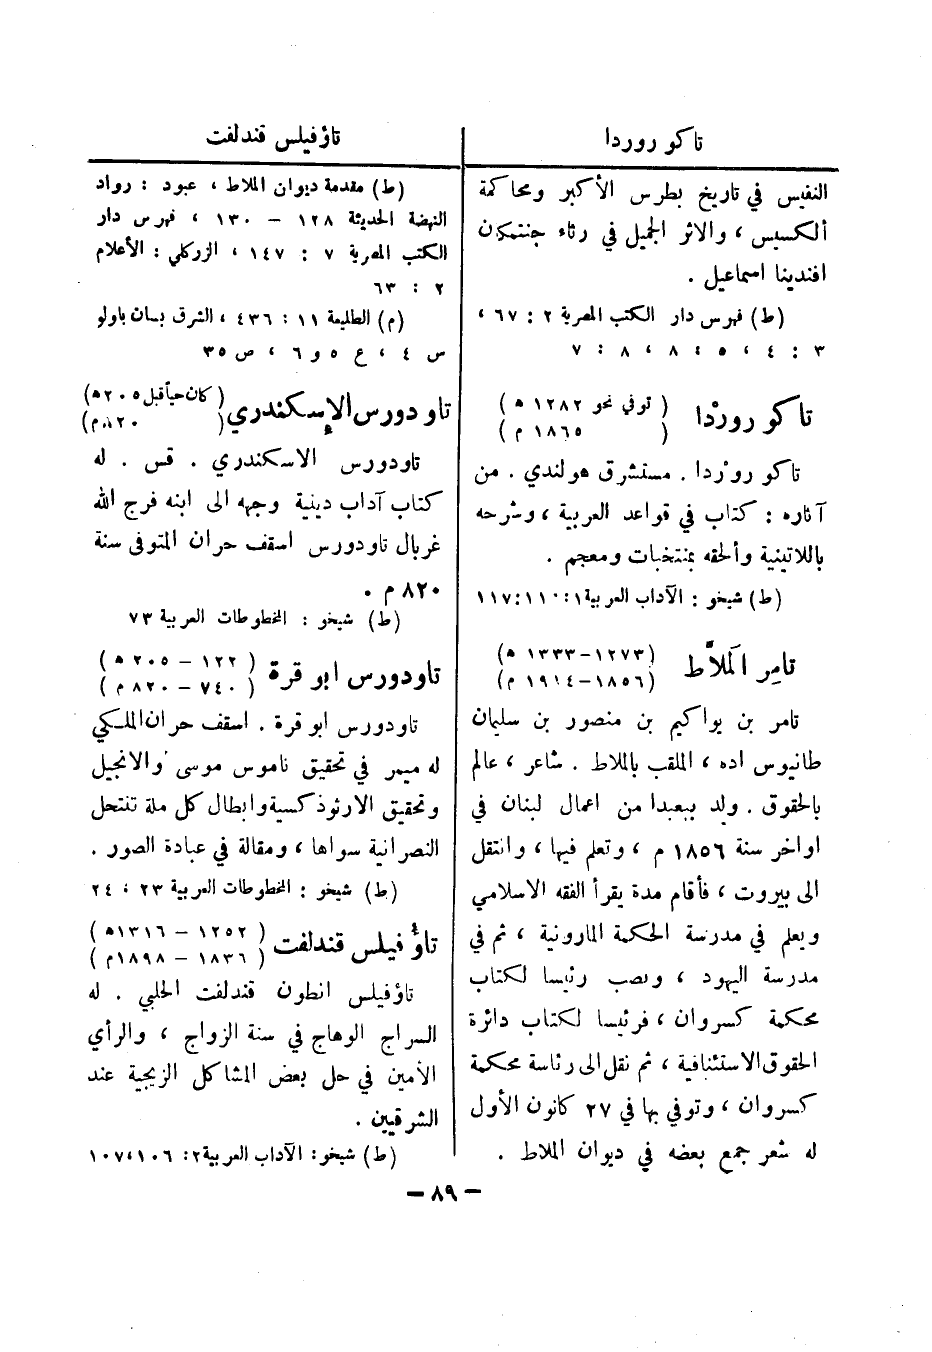 تاكو روردا
تاؤفيلس قندلفت
النفيس في تاريخ بطرس الأكبر ومحاكمة
ألكسيس ، والاثر الجميل في رثاء جنتمكان
افندينا اسماعيل .
(ط) فهرس دار الكتب المصرية ٢ : ٦٧ ،
٣ : ٤ ، ٥ : ٨ ، ٨ : ٧
تاكو روردا ( توفي نحو ١٢٨٢ ه )
( ١٨٦٥ م )
تاكو روردا . مستشرق هولندي . من
آثاره : كتاب في قواعد العربية ، وشرحه
باللاتينية وألحقه بمنتخبات ومعجم .
(ط) شيخو : الآداب العربية ١ : ١١٠ : ١١٧
تامر الملاّط (١٢٧٣-١٣٣٣ ه)
(١٨٥٦-١٩١٤ م)
تامر بن يواكيم بن منصور بن سليمان
طانيوس اده ، الملقب بالملاط . شاعر ، عالم
بالحقوق . ولد ببعبدا من اعمال لبنان في
اواخر سنة ١٨٥٦ م ، وتعلم فيها ، وانتقل
الى بيروت ، فأقام مدة يقرأ الفقه الاسلامي
ويعلم في مدرسة الحكمة المارونية ، ثم في
مدرسة اليهود ، ونصب رئيسا لكتاب
محكمة كسروان ، فرئيسا لكتاب دائرة
الحقوق الاستئنافية ، ثم نقل الى رئاسة محكمة
كسروان ، وتوفي بها في ٢٧ كانون الأول
له شعر جمع بعضه في ديوان الملاط .
(ط) مقدمة ديوان الملاط ، عبود : رواد
النهضة الحديثة ١٢٨ - ١٣٠ ، فهرس دار
الكتب المصرية ٧ : ١٤٧ ، الزركلي : الأعلام
٢ : ٦٣
(م) الطليعة ١١ : ٤٣٦ ، الشرق بسان باولو
س ٤ ، ع ٥ و ٦ ، ص ٣٥
تاودورس الإسكندري ( كان حياً قبل ٢٠٥ ه )
( ٨٢٠ م )
تاودورس الاسكندري . قس . له
كتاب آداب دينية وجهه الى ابنه فرج الله
غربال تاودورس اسقف حران المتوفى سنة
٨٢٠ م .
(ط) شيخو : المخطوطات العربية ٧٣
تاودورس ابو قرة ( ١٢٢ - ٢٠٥ ه )
( ٧٤٠ - ٨٢٠ م )
تاودورس ابو قرة . اسقف حران الملكي
له ميمر في تحقيق ناموس موسى والانجيل
وتحقيق الارثوذكسية وابطال كل ملة تنتحل
النصرانية سواها ، ومقالة في عبادة الصور .
(ط) شيخو : المخطوطات العربية ٢٣ ، ٢٤
تاؤفيلس قندلفت ( ١٢٥٢ - ١٣١٦ ه )
( ١٨٣٦ - ١٨٩٨ م )
تاؤفيلس انطون قندلفت الحلبي . له
السراج الوهاج في سنة الزواج ، والرأي
الأمين في حل بعض المشاكل الزيجية عند
الشرقيين .
(ط) شيخو : الآداب العربية ٢ : ١٠٦ ، ١٠٧
- ٨٩ -